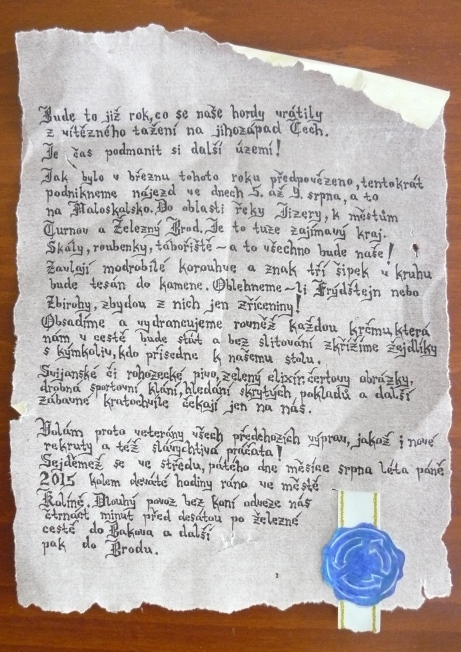 Bude to již rok, co se naše hordy vrátily
z vítězného tažení na jihozápad Čech.
Je čas podmanit si další území!
Jak bylo v březnu tohoto roku předpovězeno, tentokrát
podnikneme nájezd ve dnech 5. až 9. srpna, a to
na Maloskalsko. Do oblasti řeky Jizery, k městům
Turnov a Železný Brod. Je to tuze zajímavý kraj.
Skály, roubenky, tábořiště – a to všechno bude naše!
Zavlají modrobílé korouhve a znak tří šipek v kruhu
bude tesán do kamene. Oblehneme-li Frýdštejn nebo
Zbirohy, zbydou z nich jen zříceniny!
Obsadíme a vydrancujeme rovněž každou krčmu, která
nám v cestě bude stát a bez slitování zkřížíme žejdlíky
s kýmkoliv, kdo přisedne k našemu stolu.
Svijanské či rohozecké pivo, zelený elixír, čertovy obrázky,
drobná sportovní klání, hledání skrytých pokladů a další
zábavné kratochvíle čekají jen na nás.
Volám proto veterány všech předchozích výprav, jakož i nové
rekruty a též slávychtivá pacata!
Sejděmež se ve středu, pátého dne měsíce srpna léta páně
2015 kolem deváté hodiny ráno ve městě
Kolíně. Dlouhý povoz bez koní odveze nás
čtrnáct minut před desátou po železné
cestě do Bakova a další
pak do Brodu.